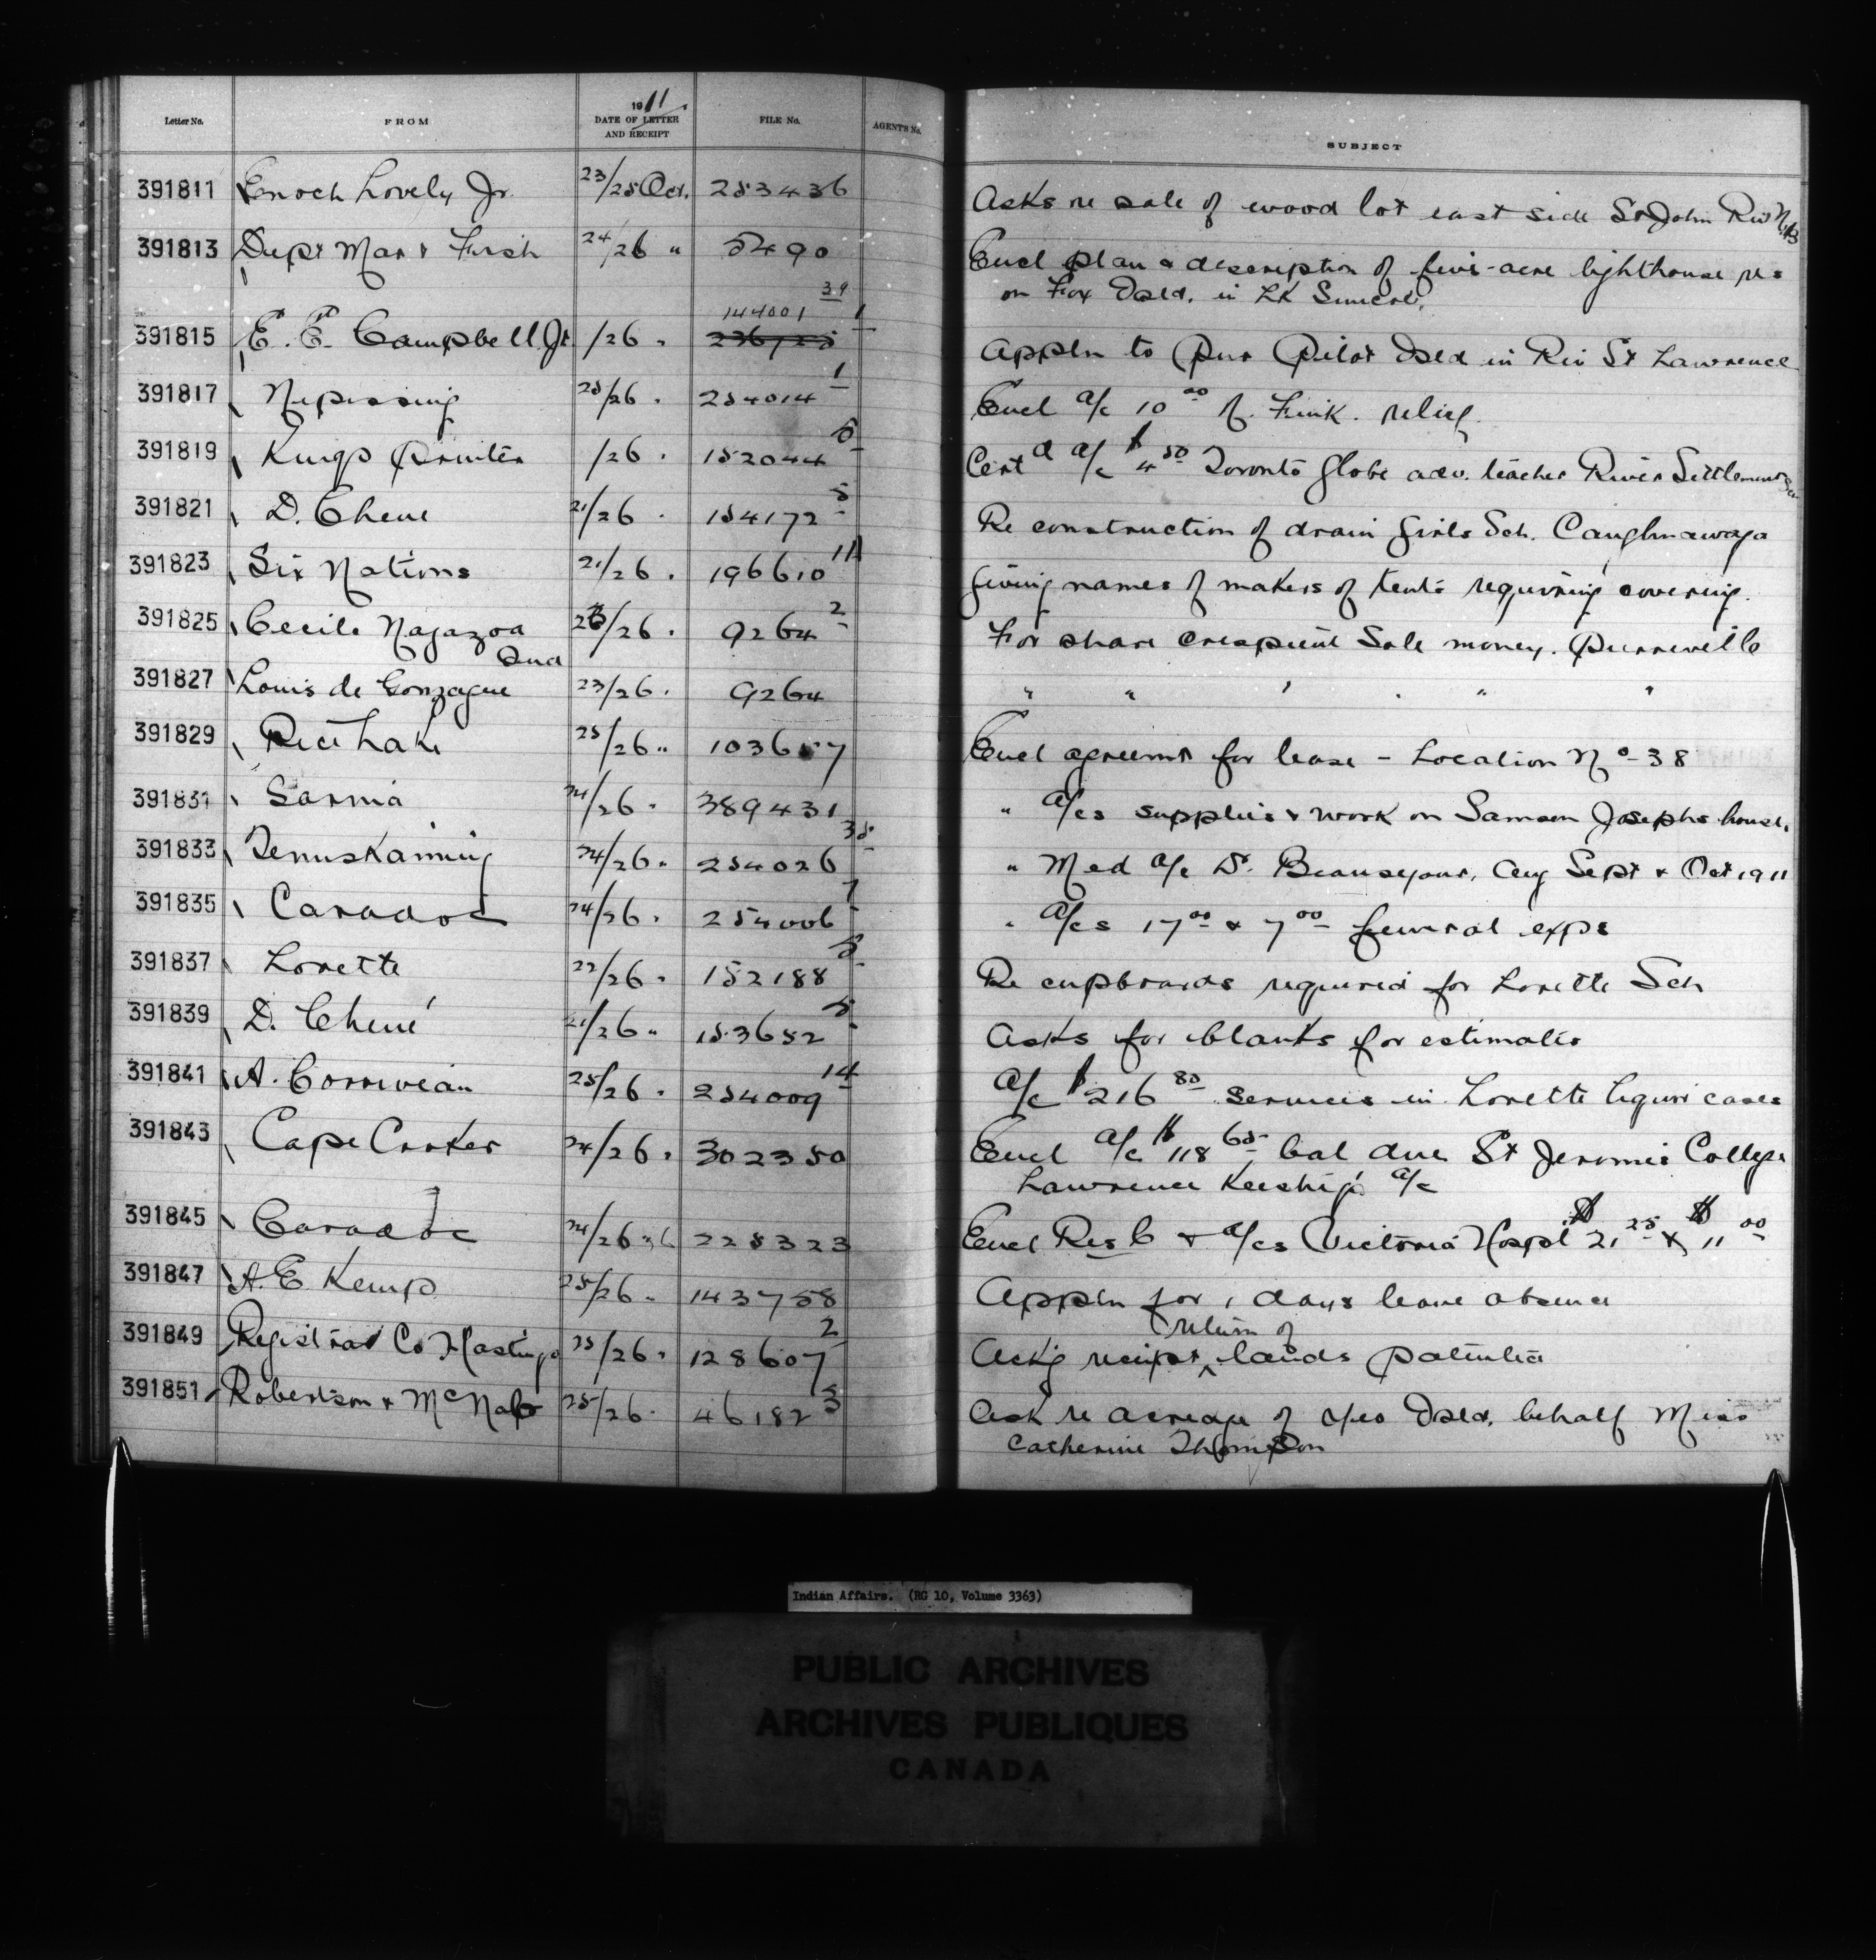 Letter No. FROM 1911 DATE OF LETTER AND RECEIPT FILE No. AGENT'S No. SUBJECT
391811 Enoch Lovely Jr. 23/25 Oct. 253436 Asks re sale of wood lot east side St John Riv N.B
391813 Dept Mar & Fish 24/26 " 5490 Encl plan & description of five-acre lighthouse re:
on Fox Isld. in Lk Simcoe.
39
144001 1
391815 E. P. Campbell Jr /26 " 236725 Appln to pur Pilot Isld in Riv St Lawrence
391817 Nipissing 25/26 " 254014 1 Encl a/c 10 00 N. Fink. relief
391819 Kings Printer /26 " 152044 5 Certd a/c $4 50 Toronto Globe adv. teacher River Settlement Sch
391821 D. Chene 21/26 " 154172 5 Re construction of drain girls Sch. Caughnawaga
391823 Six Nations 21/26 " 196610 1A Giving names of makers of tents requiring covering.
391825 Cecile Nagazoa 23/26 " 9264 2 For share Crespieul Sale money. Pierreville
Ind
391827 Louis de Gonzague 23/26 " 9264 " " " " " "
391829 Rice Lake 25/26 " 103657 Encl agreemt for lease - Location No 38
391831 Sarnia 24/26 " 389431 " a/cs supplies & work on Samson Josephs house.
391833 Temiskaming 24/26 " 254026 35 " Med a/c Dr. Beausejour, Aug Sept & Oct 1911
391835 Caradoc 24/26 " 254006 7 " a/cs 17 00 & 7 00 funeral exps
391837 Lorette 22/26 " 152188 5 Re cupboards required for Lorette Sch
391839 D. Chené 21/26 " 153652 5 Asks for blanks for estimates
391841 A. Corriveau 25/26 " 254009 14 a/c $216 80 services in Lorette liquor cases
391843 Cape Croker 24/26 " 302350 Encl a/c $118 65 bal due St Jerome's College
Lawrence Keeshig's a/c
391845 Caradoc 24/26 " 228323 Encl Res C & a/cs Victoria Hospl $21 25 & $11 00
391847 A. E Kemp 25/26 " 143758 Appln for 1 days leave absence
return of
391849 Registrar Co Hastings 25/26 " 128607 2 Ackg receipt lands patented
391851 Robertson & McNab 25/26 " 46182 3 Ask re acreage of Isld. behalf Miss
Catherine Thompson
Indian Affairs. (RG 10, Volume 3363)
PUBLIC ARCHIVES
ARCHIVES PUBLIQUES
CANADA